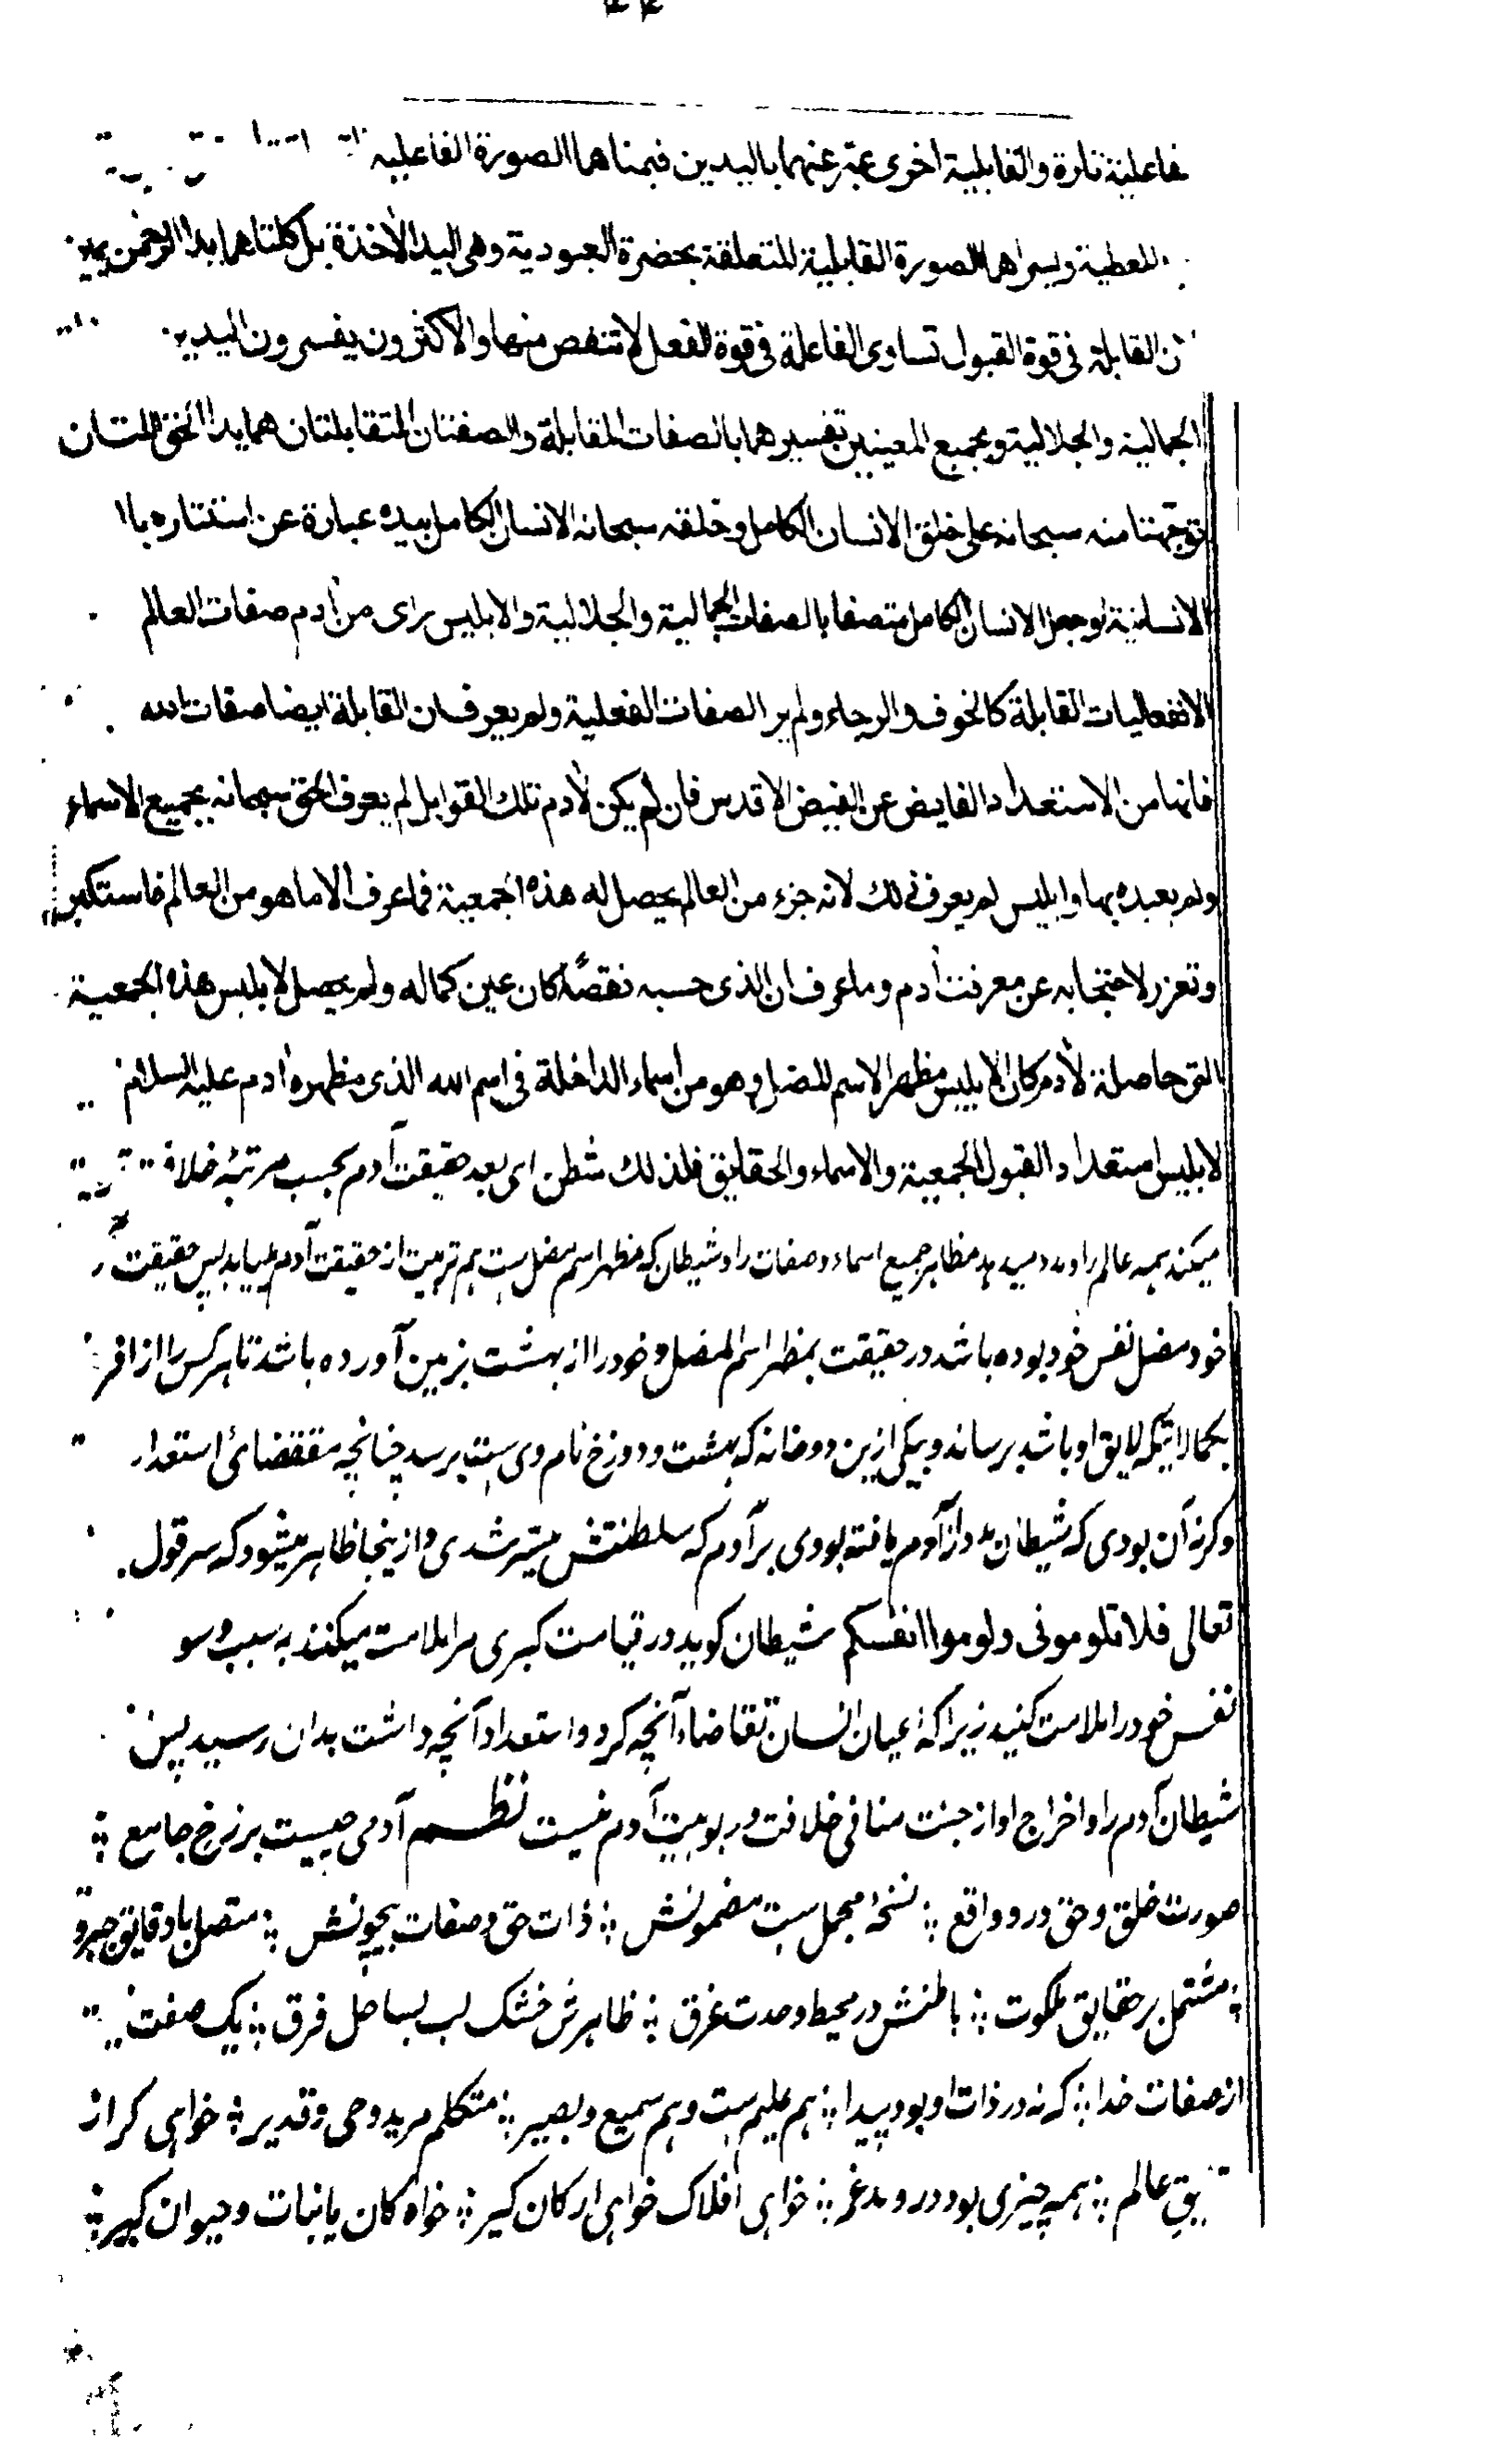 فاعلیة تارة والقابلیة اخری عبّر عنهما بالیدین فیمناهما الصورة الفاعلیه
المعطیة ویسراهما الصورة القابلیة المتعلقة بحضرة العبودیة وهی الید الآخذة بل کلتاهما یدا الرحمن
القابلة فی قوة القبول تساوی الفاعلة فی قوة الفعل لا تنقص منها والاکثرون یفسرون الیدین
الجمالیة والجلالیة وبجمیع المعنیین تفسیرهما بالصفات المقابلة والصفتان المتقابلتان هما یدا الحق اللتان
توجّهتا منه سبحانه علی خلق الانسان الکامل وخلقه سبحانه الانسان الکامل بیده عبارة عن استتاره با
الانسانیة او جعل الانسان الکامل متصفا بالصفات الجمالیة والجلالیة والابلیس رای من آدم صفات العالم
الانفعالیات القابلة کالخوف والرجاء ولم یر الصفات الفعلیة ولم یعرف ان القابلة ایضا صفات الله
فانها من الاستعداد الفایض عن الفیض الاقدس فان لم یکن لآدم تلک القوابل لم یعرف الحق سبحانه بجمیع الاسماء
ولم یعبده بها وابلیس لم یعرف ذلک لانه جزء من العالم یحصل له هذه الجمعیة فما عرف الا ما هو من العالم فاستکبر
وتعزز لاحتجابه عن معرفت آدم وما عرف ان الذی حسبه نقصًا کان عین کماله ولم یحصل لابلیس هذه الجمعیة
التی حاصلة لآدم کان الابلیس مظهر الاسم المضل وهو من اسماء الداخلة فی اسم الله الذی مظهره آدم علیه السلام
لابلیس استعداد القبول الجمعیة والاسماء والحقایق فلذلک شطن ای بعد حقیقت آدم بحسب مرتبۀ خلافت
میکند همه عالم را و مدد میدهد مظاهر جمیع اسماء و صفات را و شیطان که مظهر اسم مضل ست هم تربیت از حقیقت آدم مییابد پس حقیقت
خود مضل نفس خود بوده باشد در حقیقت بمظهر اسم المضل و خود را از بهشت بزمین آورده باشد تا هر کس را از افر
بکمالاتیکه لایق او باشد برساند و بیکی ازین دو خانه که بهشت و دوزخ نام وی ست برسد چنانچه مقتضائی استعداد
وگرنه آن بودی که شیطان مدد از آدم یافته بودی بر آدم که سلطنتش میسّر شدی و ازینجا ظاهر میشود که سر قول
تعالی فلا تلومونی ولوموا انفسکم شیطان گوید در قیامت کبری مرا ملامت میکنند به سبب وسو
نفس خود را ملامت کنید زیرا که اعیان انسان تقاضاء آنچه کرد و استعداد آنچه داشت بدان رسید پس
شیطان آدم را و اخراج او از جنت منافی خلافت و ربوبیت آدم نیست نظم آدمی چیست برزخ جامع ؞
صورت خلق و حق درو واقع ؞ نسخۀ مجمل ست مضمونش ؞ ذات حق و صفات بیچونش ؞ متصل با دقایق جبرو
؞ مشتمل بر حقایق ملکوت ؞ باطنش در محیط وحدت غرق ؞ ظاهرش خشک لب بساحل فرق ؞ یک صفت
از صفات خدا ؞ که نه در ذات او بود پیدا ؞ هم علیم ست و هم سمیع و بصیر ؞ متکلم مرید و حی و قدیر ؞ خواهی گر از
عالم ؞ همه چیزی بود درو مدغم ؞ خواهی افلاک خواهی ارکان گیر ؞ خواه کان یا نبات و حیوان گیر ؞